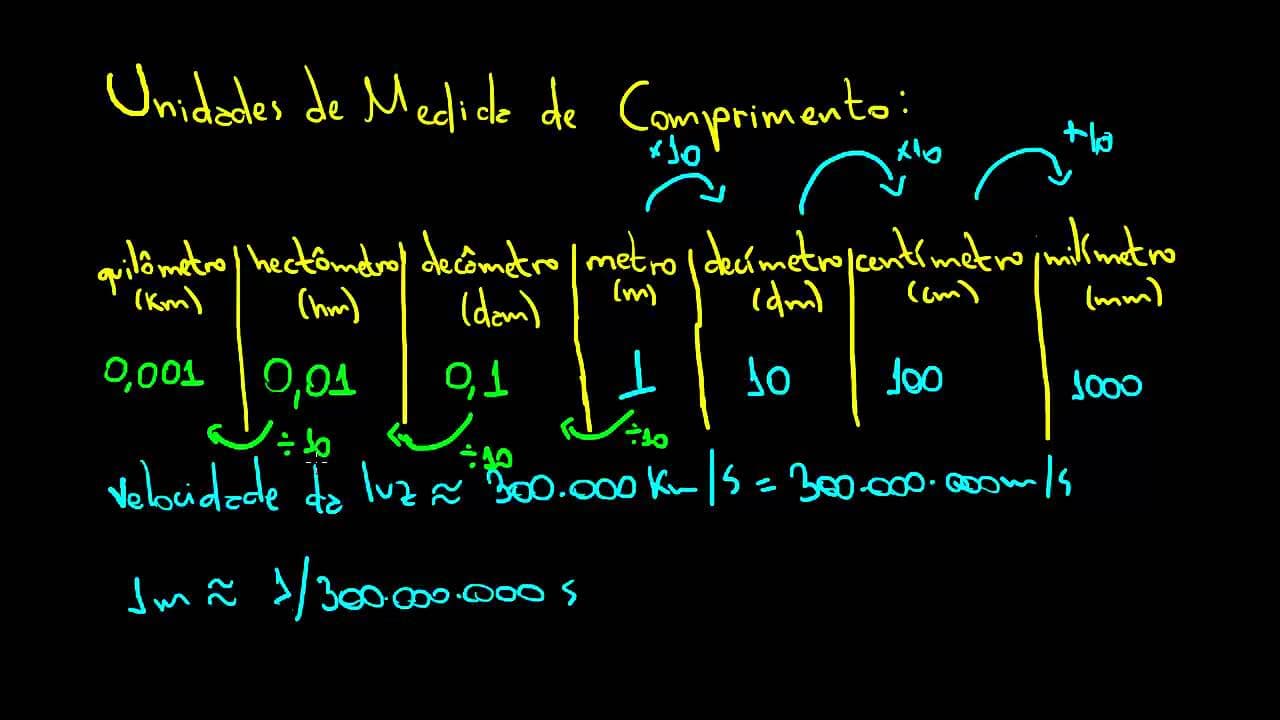 Unidades de Medida de Comprimento:
×10 ×10 ×10
quilômetro hectômetro decâmetro metro decímetro centímetro milímetro
(km) (hm) (dam) (m) (dm) (cm) (mm)
0,001 0,01 0,1 1 10 100 1000
÷10 ÷10 ÷10
velocidade da luz ≈ 300.000 Km/s = 300.000.000m/s
1m ≈ 1/300.000.000 s